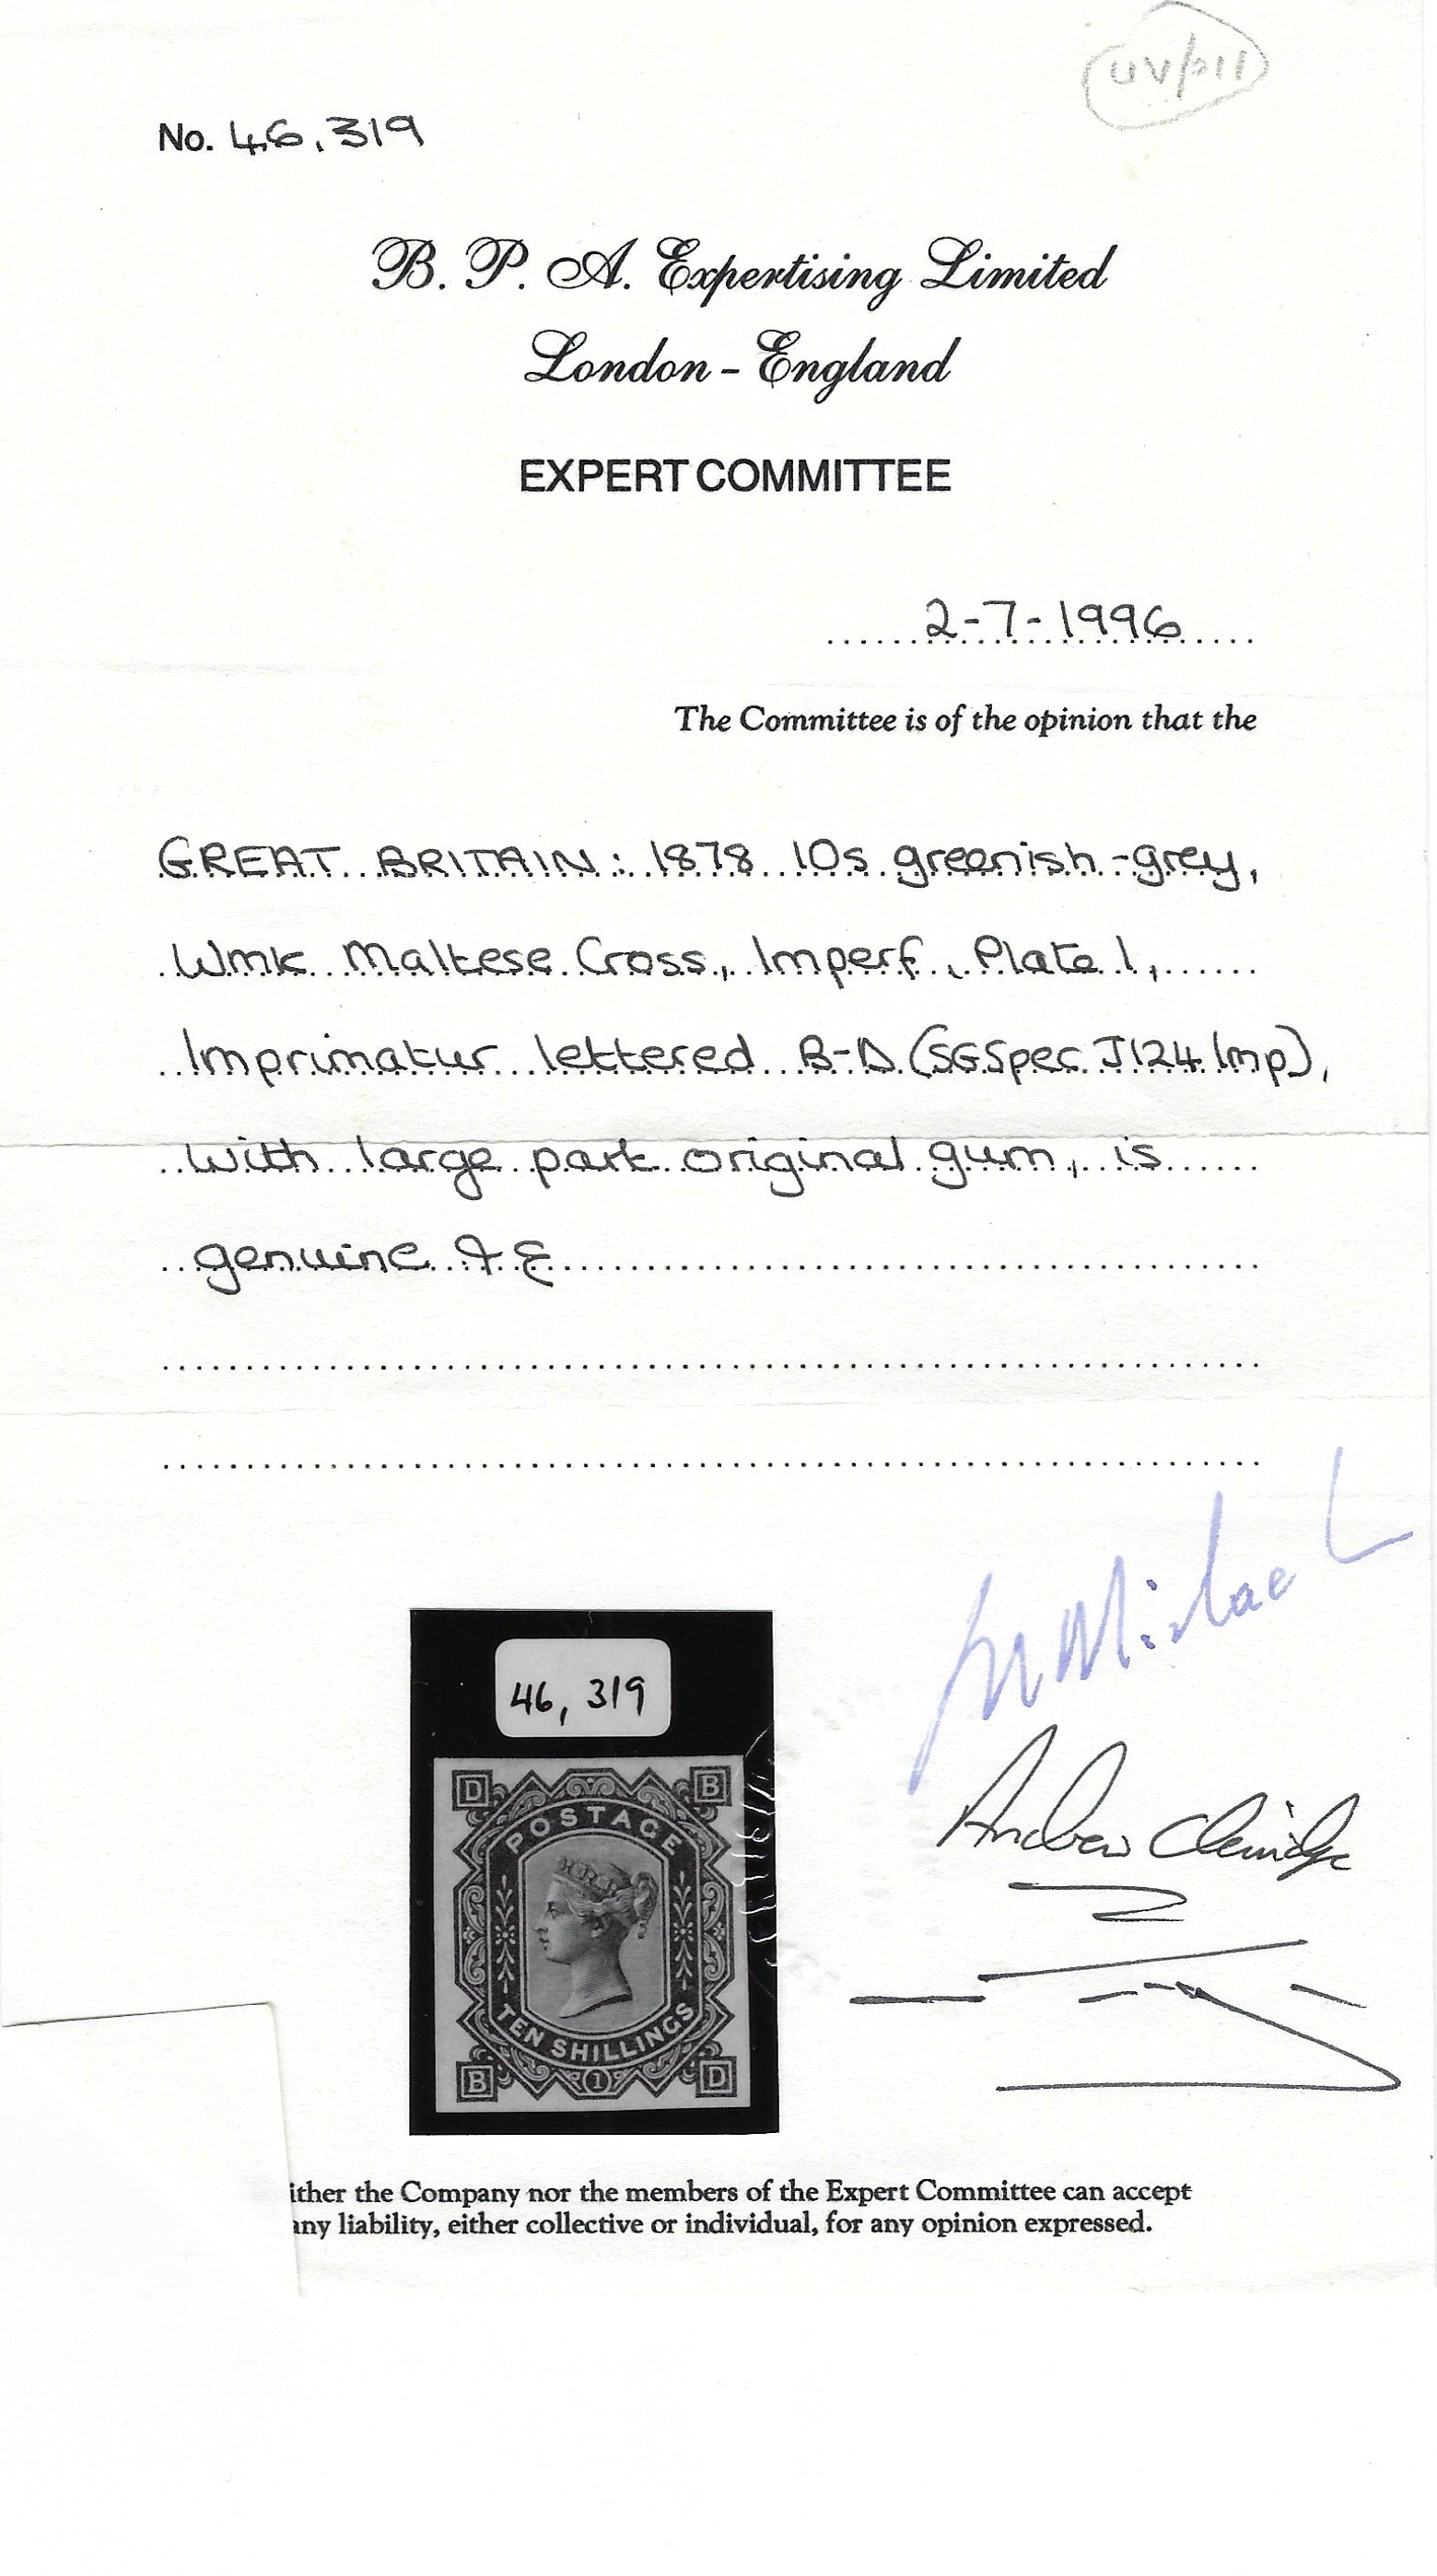 UV/211
No. 46,319
B. P. A. Expertising Limited
London - England
EXPERT COMMITTEE
2-7-1996
The Committee is of the opinion that the
GREAT BRITAIN: 1878 10s greenish-grey,
Wmk Maltese Cross, Imperf, Plate 1,
Imprimatur lettered B-D (SGSpec J124 Imp),
with large part original gum, is
genuine
46, 319
D B
POSTAGE
TEN SHILLINGS
B 1 D
Andrew Claridge
ither the Company nor the members of the Expert Committee can accept
any liability, either collective or individual, for any opinion expressed.